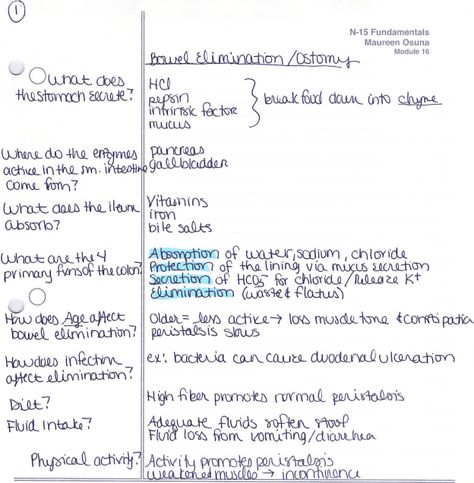 1
N-15 Fundamentals
Maureen Osuna
Module 16
Bowel Elimination/Ostomy
What does
the stomach secrete?
HCl
pepsin
intrinsic factor
mucus
break food down into chyme
Where do the enzymes
active in the sm. intestine
come from?
pancreas
gallbladder
What does the ileum
absorb?
Vitamins
iron
bile salts
What are the 4
primary fxns of the colon?
Absorption of water, sodium, chloride
Protection of the lining via mucus secretion
Secretion of HCO3⁻ for chloride/Release K+
Elimination (waste & flatus)
How does Age affect
bowel elimination?
Older = less active → loss muscle tone & constipation
peristalsis slows
How does infection
affect elimination?
ex: bacteria can cause duodenal ulceration
Diet?
High fiber promotes normal peristalsis
Fluid Intake?
Adequate fluids soften stool
Fluid loss from vomiting/diarrhea
Physical activity?
Activity promotes peristalsis
weakened muscles → incontinence